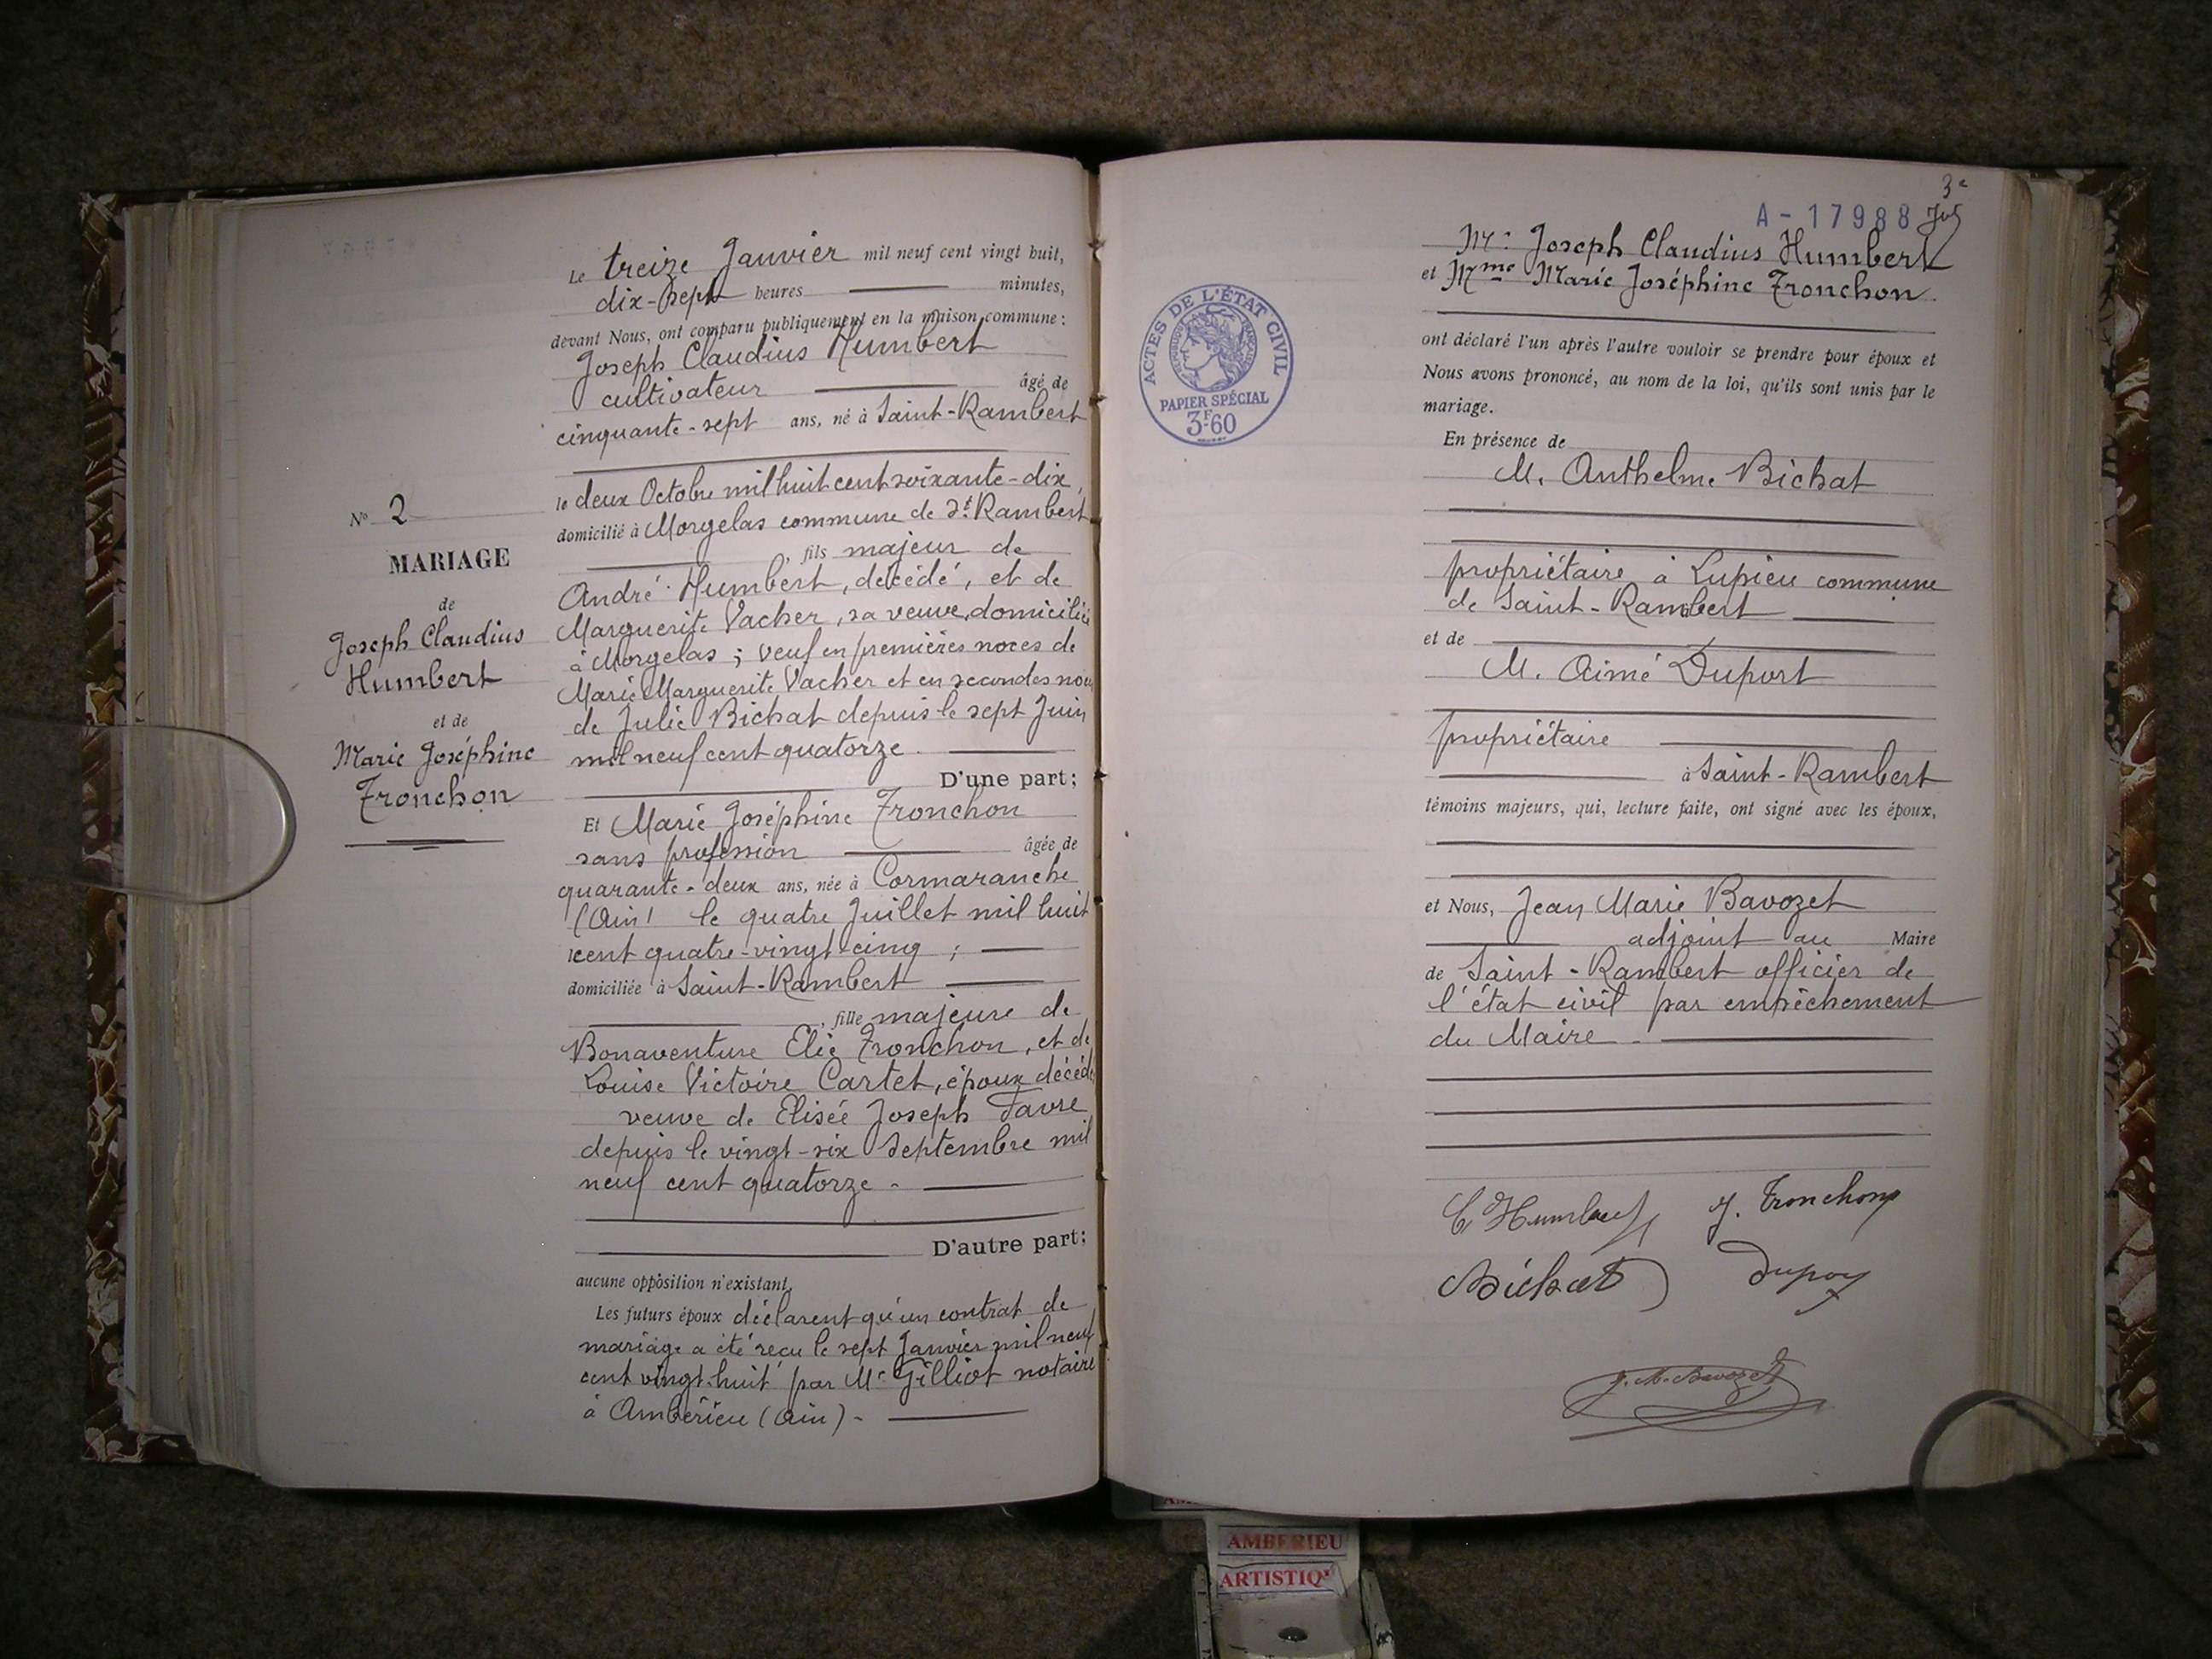 Le treize Janvier mil neuf cent vingt huit,
dix-sept heures minutes,
devant Nous, ont comparu publiquement en la maison commune :
Joseph Claudius Humbert
cultivateur âgé de
cinquante-sept ans, né à Saint-Rambert
le deux Octobre mil huit cent soixante-dix,
domicilié à Morgelas commune de St Rambert
, fils majeur de
André Humbert, décédé, et de
Marguerite Vacher, sa veuve, domiciliée
à Morgelas ; veuf en premières noces de
Marie Marguerite Vacher et en secondes noces
de Julie Bichat depuis le sept Juin
mil neuf cent quatorze.
D'une part;
Et Marie Joséphine Tronchon
sans profession âgée de
quarante-deux ans, née à Cormaranche
(Ain) le quatre Juillet mil huit
cent quatre-vingt cinq ;
domiciliée à Saint-Rambert
, fille majeure de
Bonaventure Elie Tronchon, et de
Louise Victoire Cartet, époux décédés
veuve de Elisée Joseph Favre
depuis le vingt-six Septembre mil
neuf cent quatorze -
D'autre part;
aucune opposition n'existant,
Les futurs époux déclarent qu'un contrat de
mariage a été reçu le sept Janvier mil neuf
cent vingt-huit par Me Gilliot notaire
à Ambérieu (Ain) -
No 2
MARIAGE
de
Joseph Claudius
Humbert
et de
Marie Joséphine
Tronchon
3e
A-17988
Mr Joseph Claudius Humbert
et Mme Marie Joséphine Tronchon
ont déclaré l'un après l'autre vouloir se prendre pour époux et
Nous avons prononcé, au nom de la loi, qu'ils sont unis par le
mariage.
En présence de
M. Anthelme Bichat
propriétaire à Lupieu commune
de Saint-Rambert
et de
M. Aimé Duport
propriétaire
à Saint-Rambert
témoins majeurs, qui, lecture faite, ont signé avec les époux,
et Nous, Jean Marie Bavozet
adjoint au Maire
de Saint-Rambert officier de
l'état civil par empêchement
du Maire -
C Humbert J. Tronchon
Bichat Duport
J. M. Bavozet
ACTES DE L'ÉTAT CIVIL
RÉPUBLIQUE FRANÇAISE
PAPIER SPÉCIAL
3F60
AMBERIEU
ARTISTIQ